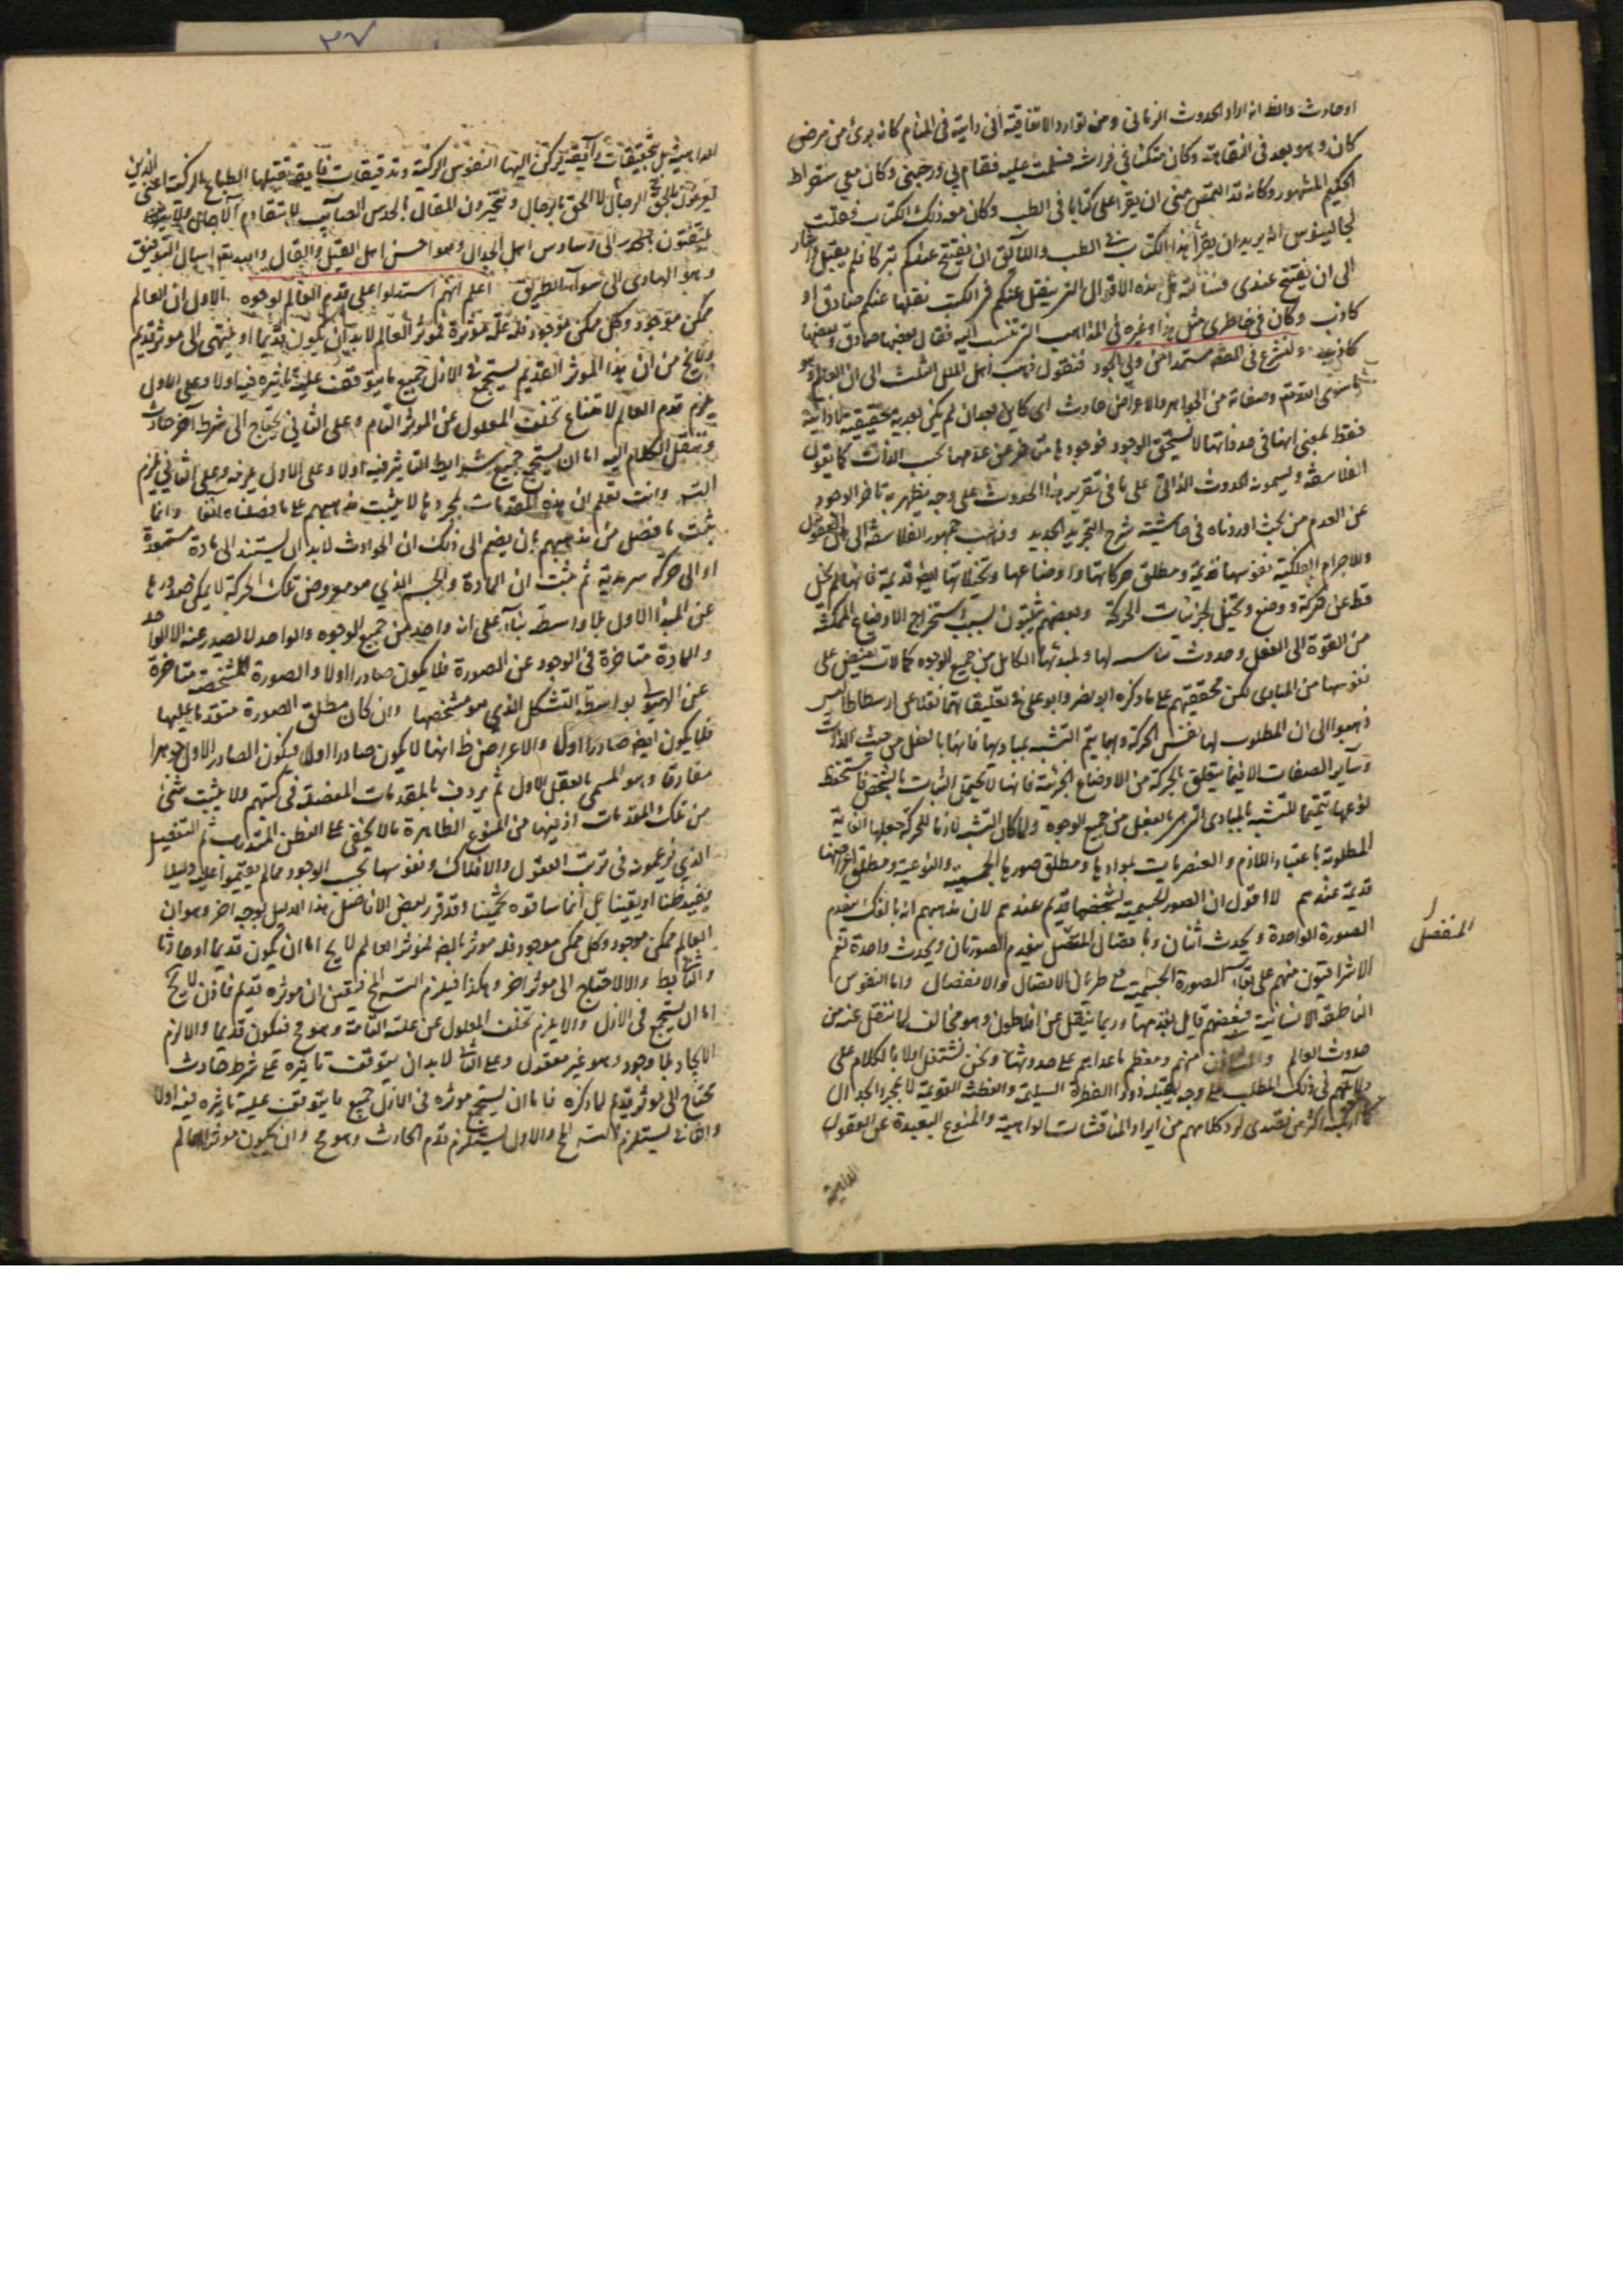 او حادث والظ انه اراد الحدوث الزماني ومن توارد الاتفاقية انى رايته في المنام كانه برئ من مرض
كان وهو بعد في النقاهة وكان متكئا في فراشه فسلمت عليه فقام لي ورحبني وكان معي سقراط
الحكيم المشهور وكانه قد التمس مني ان يقرا على كتابا في الطب وكان معه ذلك الكتاب فقلت
لجالينوس انه يريد ان يقرأ هذا الكتاب في الطب واللائق ان يفتتح عندكم تبركا فلم يقبل واشار
الى ان يفتتح عندي فسألته هل هذه الاقوال التي ينقل عنكم في الكتب نقلها عنكم صادق او
كاذب وكان في خاطري مثل هذا وغيره في المذاهب التي تنسب اليه فقال بعضها صادق وبعضها
كاذب ولنشرع في المقصد مستمدا من ولي الجود فنقول ذهب اهل الملل الثلث الى ان العالم وهو
ما سوى الله تعم وصفاته من الجواهر والاعراض حادث اى كاين بعد ان لم يكن بعدية حقيقية لا ذاتية
فقط بمعنى انها في حد ذاتها لا يستحق الوجود فوجودها متاخر عن عدمها بحسب الذات كما يقول
الفلاسفة ويسمونه الحدوث الذاتي على ما في تقرير هذا الحدوث على وجه يظهر به تاخر الوجود
عن العدم من بحث اوردناه في حاشية شرح التجريد الجديد وذهب جمهور الفلاسفة الى ان العقول
والاجرام الفلكية نفوسها قديمة ومطلق حركاتها واوضاعها وتخيلاتها ايضا قديمة فانها لم يخل
قط عن حركة ووضع وتخيل لجزئيات الحركة وبعضهم يثبتون بسبب استخراج الاوضاع الممكنة
من القوة الى الفعل وحدوث لها ولمبدئها الكامل من جميع الوجوه كمالات تفيض على
نفوسها من المبادى لكن محققيهم على ما ذكره ابو نصر وابو على في تعليقاتهما نقلا عن ارسطاطاليس
ذهبوا الى ان المطلوب لها نفس الحركة وبها يتم التشبه بمباديها فانها بالفعل من حيث الذات
وساير الصفات الا فيما يتعلق بالحركة من الاوضاع الجزئية فانها لا تحتمل الثبات بالشخص فاستحفظ
نوعها تتميما للتشبه بالمبادى التي هي بالفعل من جميع الوجوه ولما كان التشبه لازما للحركة جعلها الغاية
المطلوبة باعتبار اللازم والعنصريات بموادها ومطلق صورها الجسمية والنوعية ومطلق اعراضها
قديمة عندهم لا اقول ان الصور الجسمية بشخصها قديم عندهم لان مذهبهم انه بالفك ينعدم
الصورة الواحدة ويحدث اثنان وباتصال المنفصل ينعدم الصورتان ويحدث واحدة نعم
الاشراقيون منهم على بقاء الصورة الجسمية مع طريان الاتصال والانفصال واما النفوس
الناطقة الانسانية فبعضهم قايل بقدمها وربما ينقل عن افلاطون وهو مخالف لما ننقل عنه من
حدوث العالم منهم ومعظم ما عداهم على حدوثها ونحن نشتغل اولا بالكلام على
دلائلهم في ذلك المطلب على وجه يقبله ذووا الفطرة السليمة والفطنة القويمة لا بمجرد الجدال
كما ارتكبه اكثر من تصدى لرد كلامهم من ايراد المناقشات الواهية والمنوع البعيدة عن العقول
الواهية
المنفصل
بل بتحقيقات رائقة تركن اليها النفوس الزكية وتدقيقات فايقة تقبلها الطباع الذكية اعني الذين
يعرفون بالحق الرجال لا الحق بالرجال ويتخيرون المقال بالحدس الصائب لا بتقادم الاجال ولا
يلتفتون الى وساوس اهل الجدال وهو احسن اهل القيل والقال والله تعم اسال التوفيق
وهو الهادى الى سواء الطريق اعلم انهم استدلوا على قدم العالم بوجوه الاول ان العالم
ممكن موجود وكل ممكن موجود فله علة مؤثرة فمؤثر العالم لابد ان يكون قديما او ينتهى الى موثر قديم
ولايخ من ان هذا الموثر القديم يستجمع في الازل جميع ما يتوقف عليه تاثيره فيه اولا وعلى الاول
يلزم قدم العالم لامتناع تخلف المعلول عن الموثر التام وعلى الثاني يحتاج الى شرط اخر حادث
وننقل الكلام اليه اما ان يستجمع جميع شرايط التاثير فيه اولا وعلى الاول يلزم وعلى الثاني يلزم
التسه وانت تعلم ان هذه المقدمات بمجردها لا يثبت مذهبهم على ما فصلناه انفا وانما
يثبت ما فصل من مذهبهم بان يضم الى ذلك ان الحوادث لابد ان يستند الى مادة مستعدة
او الى حركة سرمدية ثم يثبت ان المادة والجسم الذي هو معروض تلك الحركة لا يمكن صدورها
عن المبدا الاول بلا واسطة بناء على انه واحد من جميع الوجوه والواحد لا يصدر عنه الا الواحد
والمادة متاخرة في الوجود عن الصورة فلا يكون صادرا اولا والصورة المشخصة متاخرة
عن الهيولى بواسطة التشكل الذي هو مشخصها وان كان مطلق الصورة متقدما عليها
فلا يكون ايضا صادرا اولا والاعراض ظ انها لا يكون صادرا اولا فيكون الصادر الاول جوهرا
مفارقا وهو المسمى بالعقل الاول ثم يردف بالمقدمات المفصلة في كتبهم ولا يثبت شئ
من تلك المقدمات اذ فيها من المنوع الظاهرة ما لا يخفى على الفطن المتدرب ثم التفصيل
الذي يزعمونه في ترتب العقول والافلاك ونفوسها بحسب الوجود مما لم يقيموا عليه دليلا
يفيد ظنا او يقينا بل انما ساقوه تخمينا وقد قرر بعض الافاضل هذا الدليل بوجه اخر وهو ان
العالم ممكن موجود وكل ممكن موجود فله موثر بالضر فموثر العالم لايخ اما ان يكون قديما او حادثا
والثاني بط والا لاحتاج الى موثر اخر وهكذا فيلزم التسه المح فتعين ان موثره قديم فاذن لايخ
اما ان يستجمع في الازل والا يلزم تخلف المعلول عن علته التامة وهو مح فيكون قديما والا لزم
الايجاد بلا وجود وهو غير معقول وعلى الثاني لابد ان يتوقف تاثيره على شرط حادث
يحتاج الى موثر قديم لما ذكره فاما ان يستجمع موثره في الازل جميع ما يتوقف عليه تاثيره فيه اولا
والثاني يستلزم التسه المح والاول يستلزم قدم الحادث وهو مح وان يكون موثر العالم